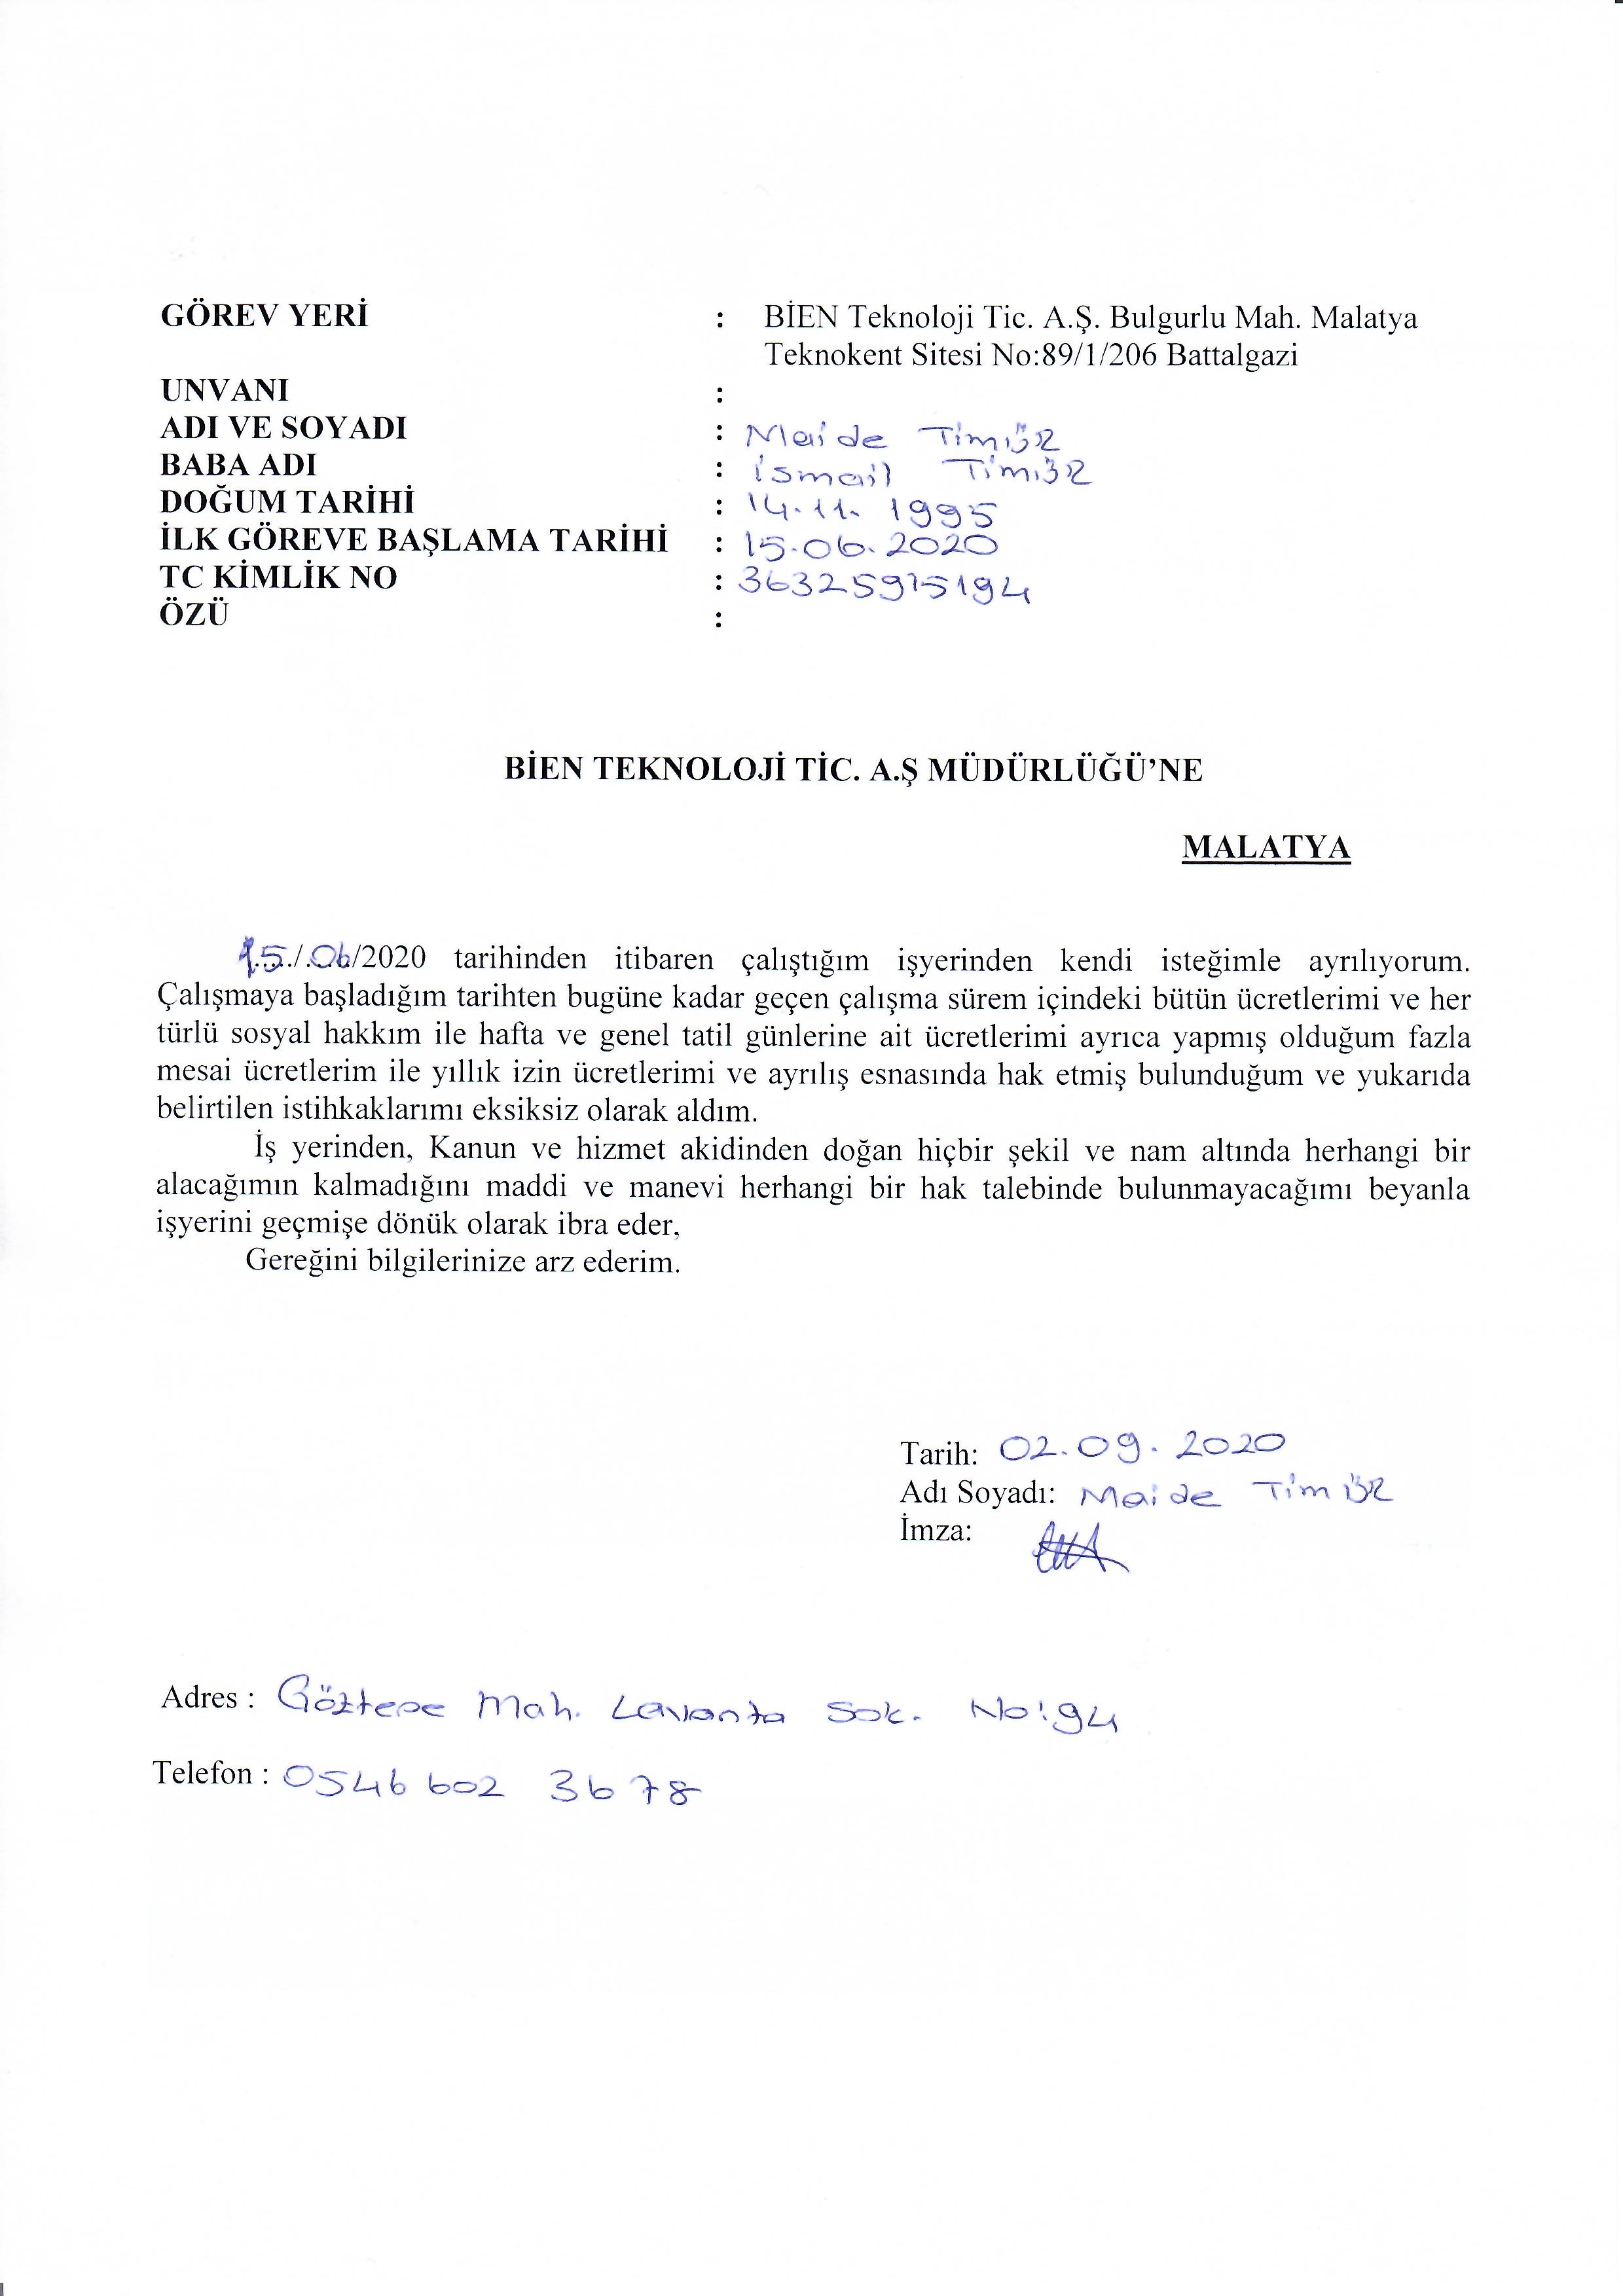 GÖREV YERİ : BİEN Teknoloji Tic. A.Ş. Bulgurlu Mah. Malatya
Teknokent Sitesi No:89/1/206 Battalgazi
UNVANI :
ADI VE SOYADI : Maide
BABA ADI : İsmail
DOĞUM TARİHİ : 14.11.1995
İLK GÖREVE BAŞLAMA TARİHİ : 15.06.2020
TC KİMLİK NO : 36325915194
ÖZÜ :
BİEN TEKNOLOJİ TİC. A.Ş MÜDÜRLÜĞÜ’NE
MALATYA
15/06/2020 tarihinden itibaren çalıştığım işyerinden kendi isteğimle ayrılıyorum.
Çalışmaya başladığım tarihten bugüne kadar geçen çalışma sürem içindeki bütün ücretlerimi ve her
türlü sosyal hakkım ile hafta ve genel tatil günlerine ait ücretlerimi ayrıca yapmış olduğum fazla
mesai ücretlerim ile yıllık izin ücretlerimi ve ayrılış esnasında hak etmiş bulunduğum ve yukarıda
belirtilen istihkaklarımı eksiksiz olarak aldım.
İş yerinden, Kanun ve hizmet akidinden doğan hiçbir şekil ve nam altında herhangi bir
alacağımın kalmadığını maddi ve manevi herhangi bir hak talebinde bulunmayacağımı beyanla
işyerini geçmişe dönük olarak ibra eder,
Gereğini bilgilerinize arz ederim.
Tarih: 02.09.2020
Adı Soyadı: Maide
İmza:
Adres : Göztepe Mah. Lavanta Sok. No:94
Telefon : 0546 602 36 78